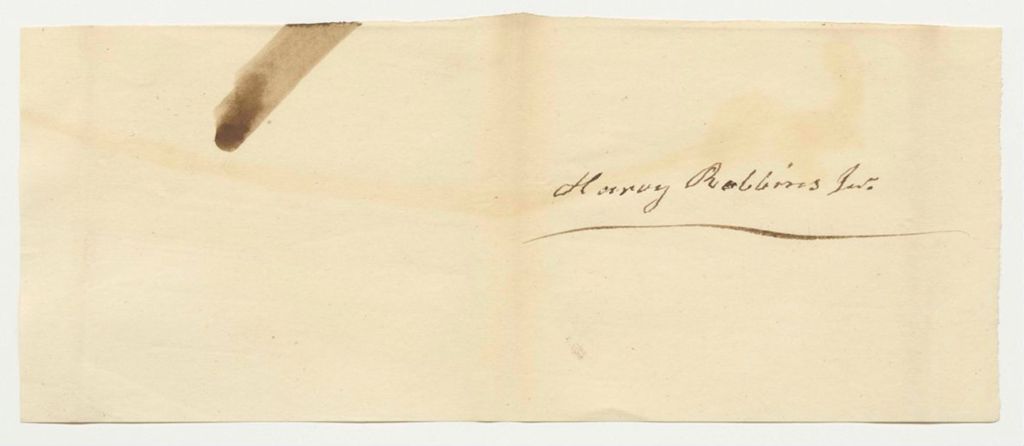 Harvy Robbins Jur.